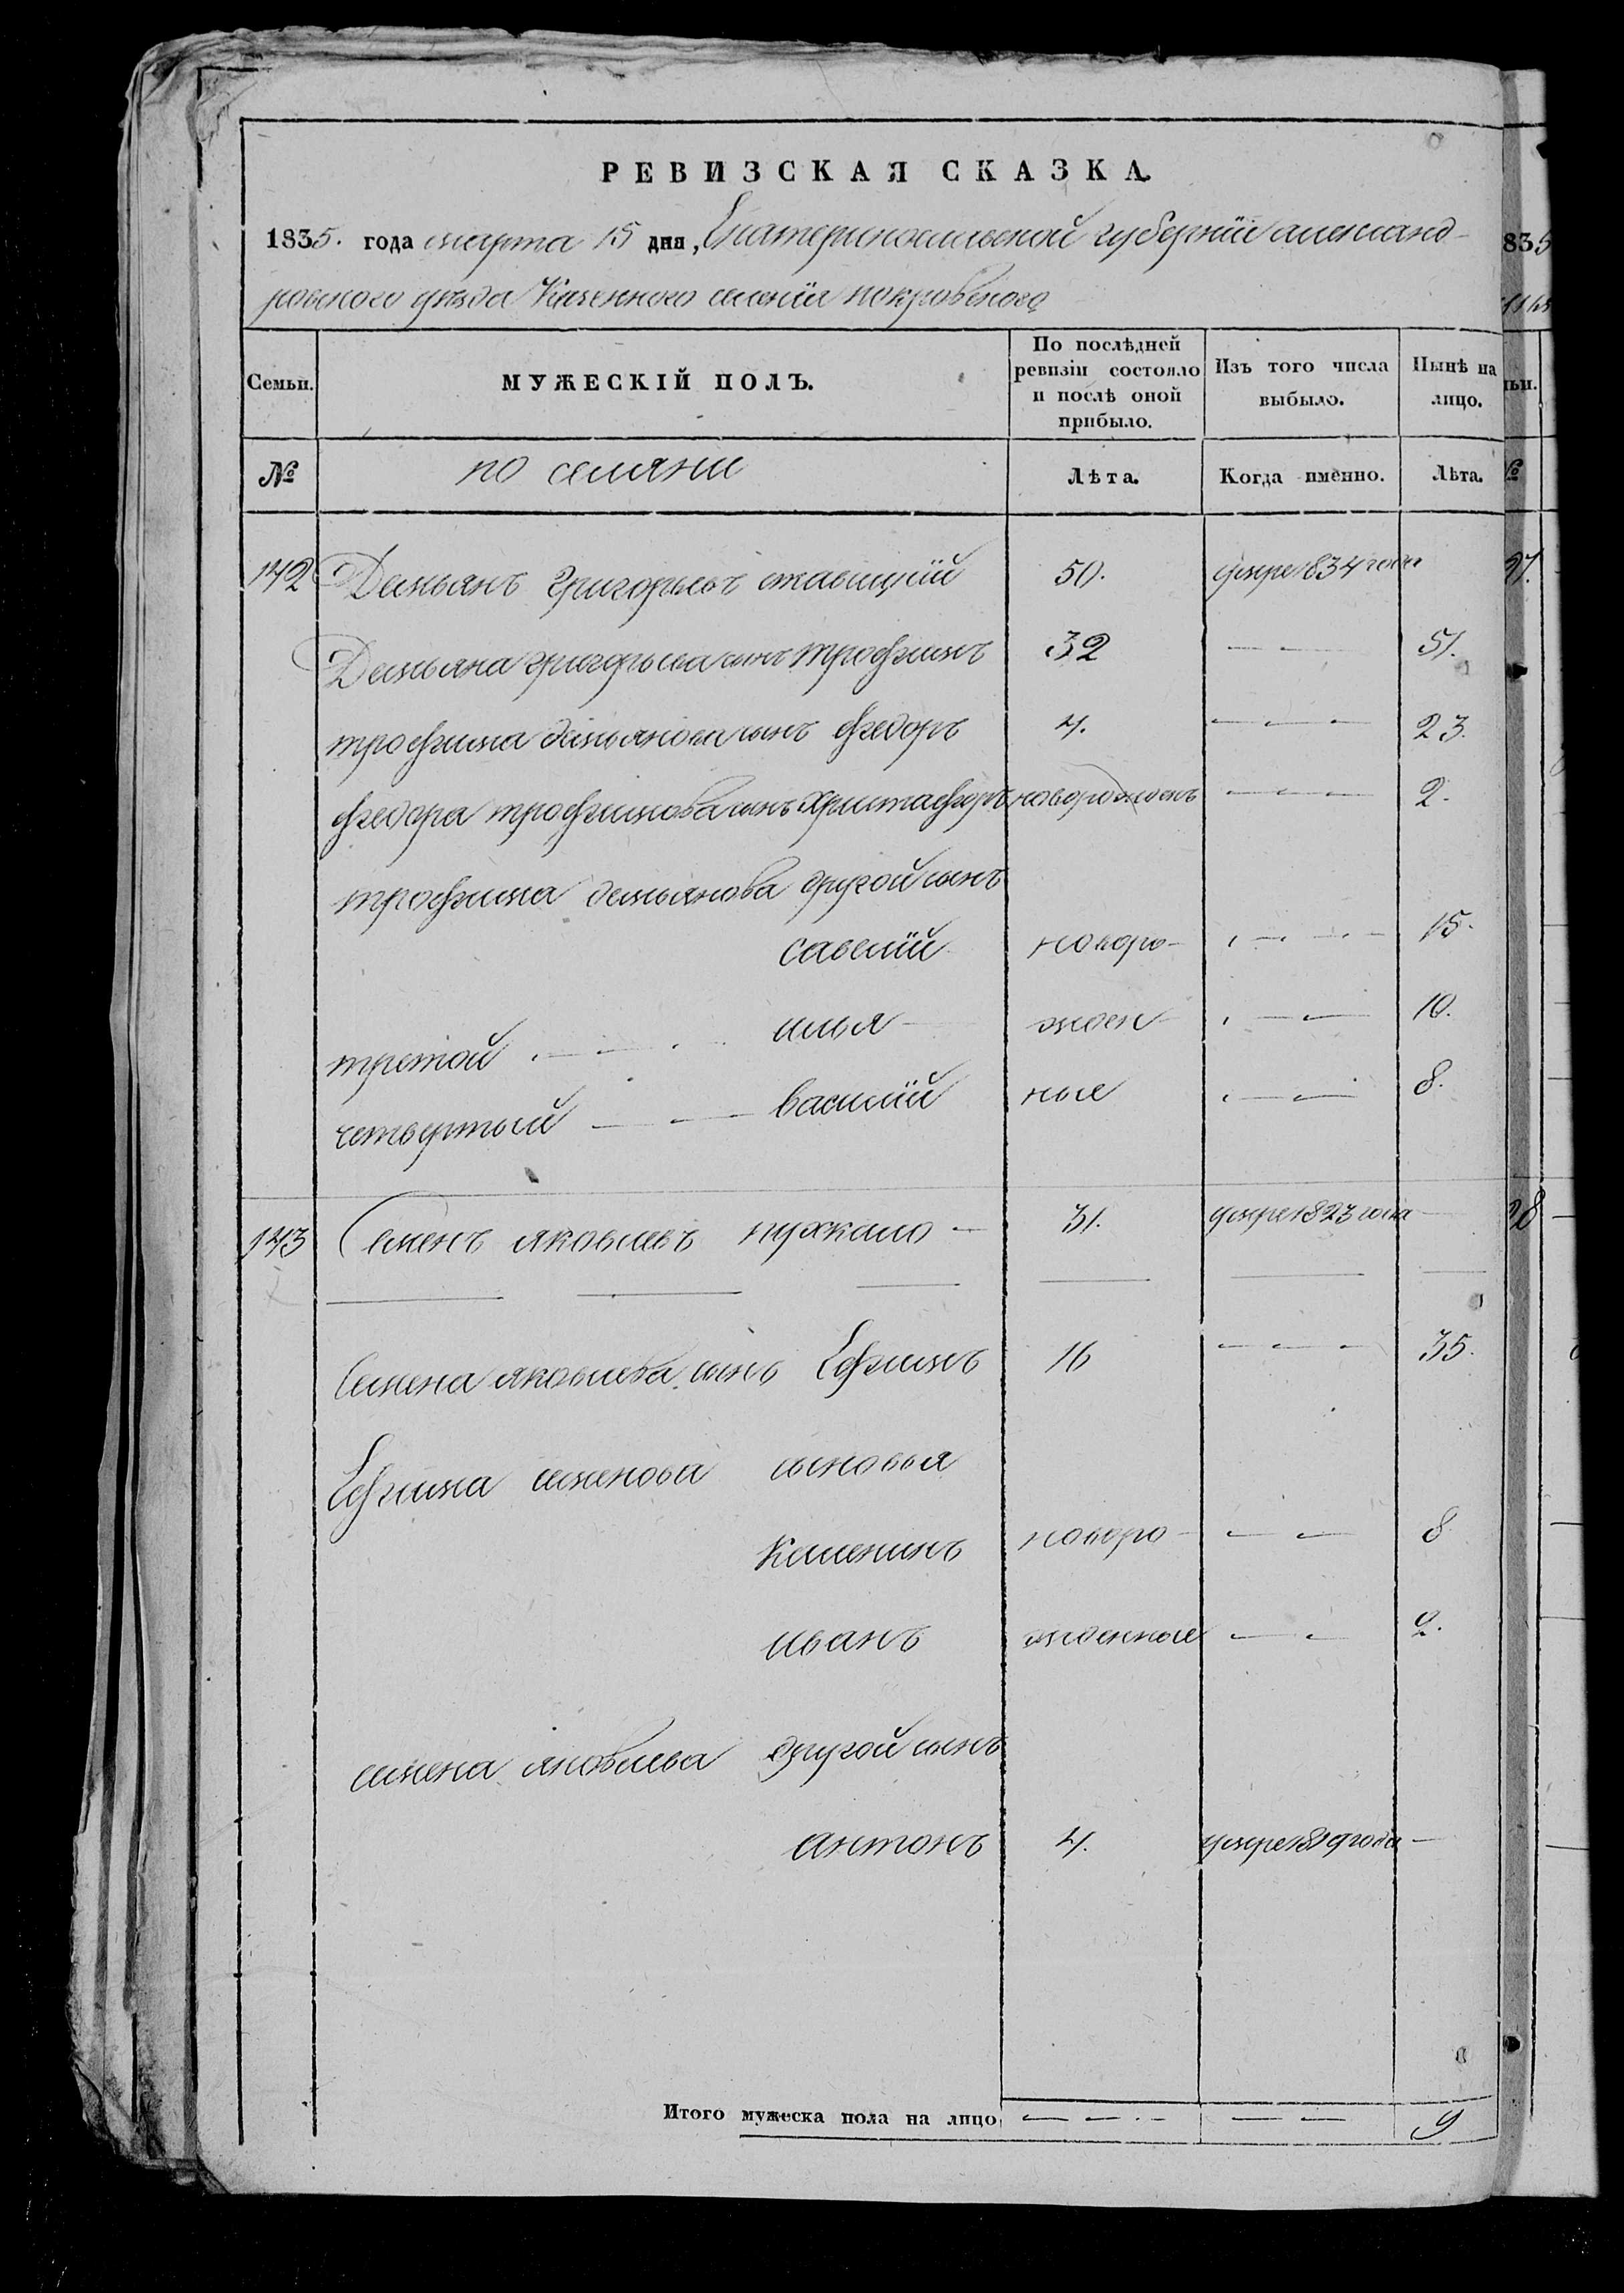 РЕВИЗСКАЯ СКАЗКА.
1835. года марта 15 дня, Екатеринославской губернїи александ-
ровского уѣзда Казенного селенїя покровского
Семьи. МУЖЕСКІЙ ПОЛЪ. По послѣдней ревизіи состояло и послѣ оной прибыло. Изъ того числа выбыло. Нынѣ на лицо.
№ по селяни Лѣта. Когда именно. Лѣта.
142 Демьянъ Григорьевъ 50. умре 1834 года
Демьяна григорьева сынъ трофимъ 32 — — 51.
трофима демьянова сынъ федоръ 4. — — — 23.
федора трофимова сынъ Христафоръ новорожденъ — — — 2.
трофима демьянова другой сынъ
савелїй новоро- — — — 15.
третой — — илья жден — — 10.
четвертый — — василїй ные — — 8.
143 Семенъ яковлевъ пухкало — 31. умре 1823 года
Семена яковлева сынъ Ефимъ 16 — — — 35.
Ефима семенова сыновья
новоро- — — 8
иванъ жденные — — 2.
семена яковлева другой сынъ
антонъ 4. умре 1819 года —
Итого мужеска пола на лицо — — — — 9